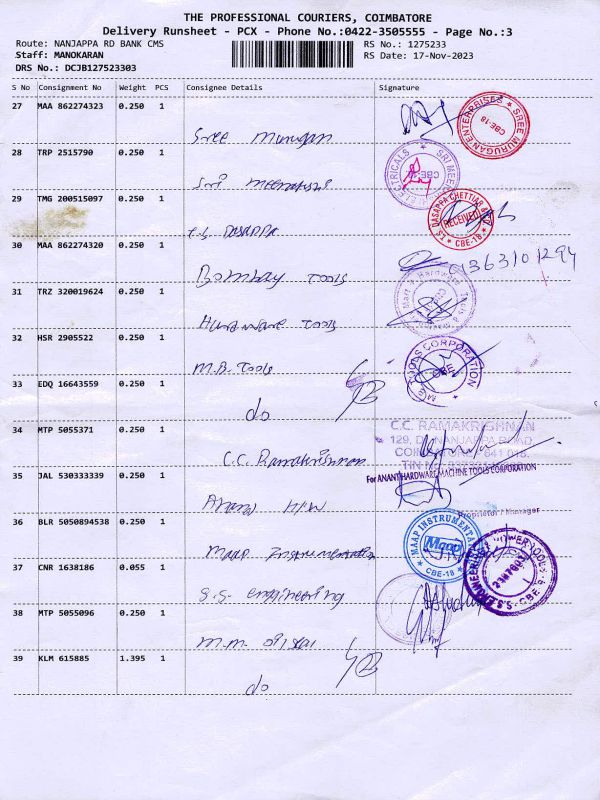 THE PROFESSIONAL COURIERS, COIMBATORE
Delivery Runsheet - PCX - Phone No.:0422-3505555 - Page No.:3
Route: NANJAPPA RD BANK CMS RS No.: 1275233
Staff: MANOKARAN RS Date: 17-Nov-2023
DRS No.: DCJB127523303
S No Consignment No Weight PCS Consignee Details Signature
27 MAA 862274323 0.250 1
Sree Murugan
SREE MURUGAN ENTERPRISES CBE-18
28 TRP 2515790 0.250 1
Sri Meenakshi
SRI MEENA ELECTRICALS CBE
29 TMG 200515097 0.250 1
T.S. DASAPPA
T.S. DASAPPA CHETTIAR RECEIVED CBE-18
30 MAA 862274320 0.250 1
Bombay Tools
31 TRZ 320019624 0.250 1
Hardware Tools
Mart Hardware Tools
32 HSR 2905522 0.250 1
M.B. Tools
TOOLS CORPORATION CBE
33 EDQ 16643559 0.250 1
do
34 MTP 5055371 0.250 1
C.C. Ramakrishnan
C.C. RAMAKRISHNAN
129, D NANJAPPA ROAD,
COIMBATORE 641 018.
TIN No.
35 JAL 530333339 0.250 1
Anand H/W
For ANANT HARDWARE MACHINE TOOLS CORPORATION
Proprietor / Manager
36 BLR 5050894538 0.250 1
Maap Instrumentation
MAAP INSTRUMENTA Maap CBE-18
37 CNR 1638186 0.055 1
S.S. engineering
S.S. ENGINEERING POWER TOOLS CBE
38 MTP 5055096 0.250 1
M.M.
39 KLM 615885 1.395 1
do